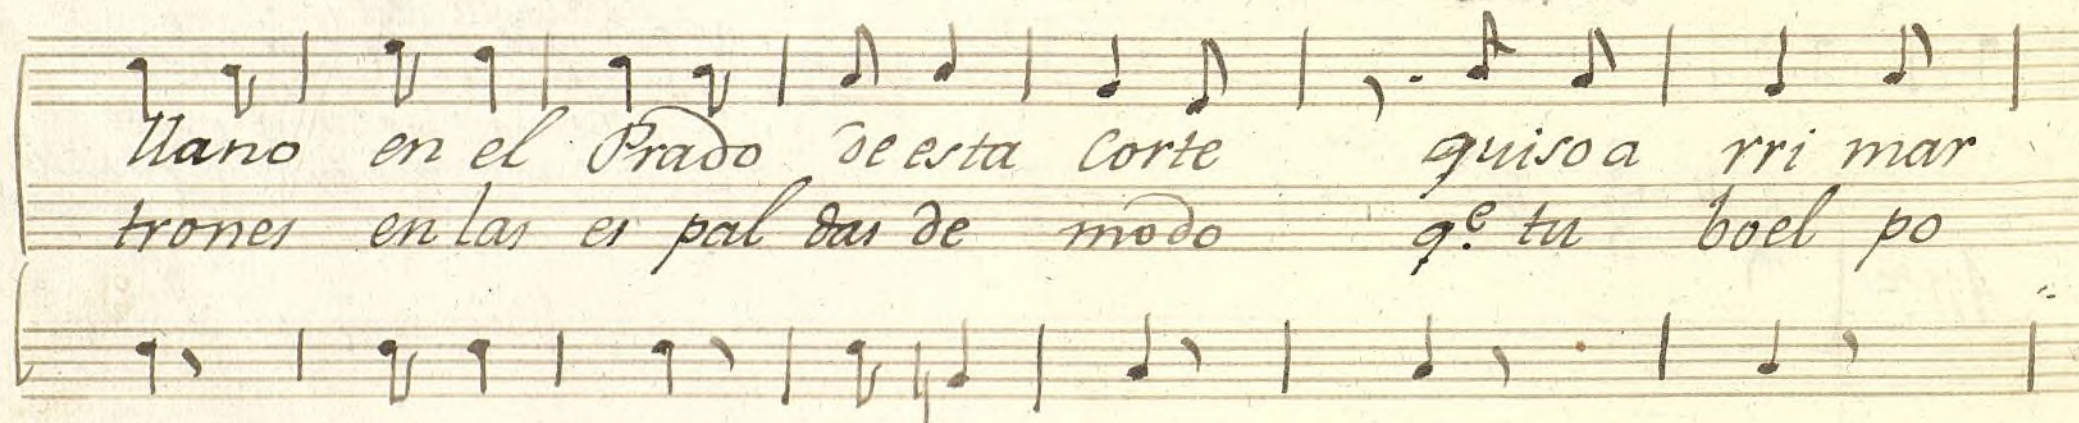 llano en el Prado de esta Corte quiso a rri mar
trones en las es pal das de modo q.e tu boel po